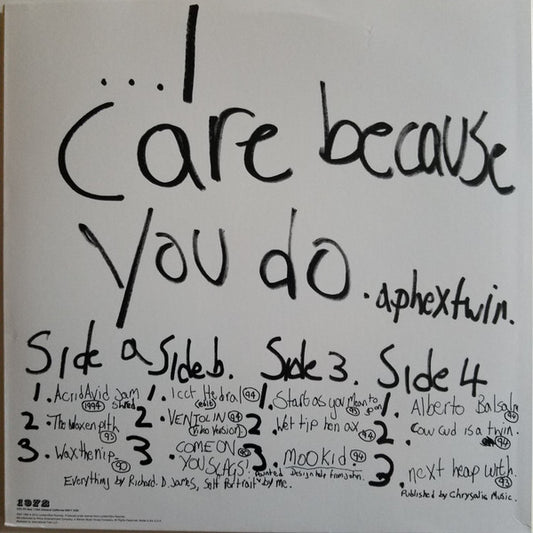 ...I
Care because
you do.
aphextwin.
Side a
1. AcridAvid Jam
1994 Shred
2. The Waxen pth
93
3. Wax the Nip.
90
Side b.
1. Icct Hedral 94
(edit)
2. VENTOLIN 94
(Video Version)
3. COME ON
YOU SLAGS!
Side 3.
1. Start as you mean to
go on
93
2. Wet tip hen ax. 94
3. Mookid. 94
Side 4
1. Alberto Balsalm
94
2. Cow cud is a twin.
94
3. next heap with.
93
Everything by Richard. D. James, Self Portrait by me.
Painted Design help from john.
Published by Chrysalis Music.
1972